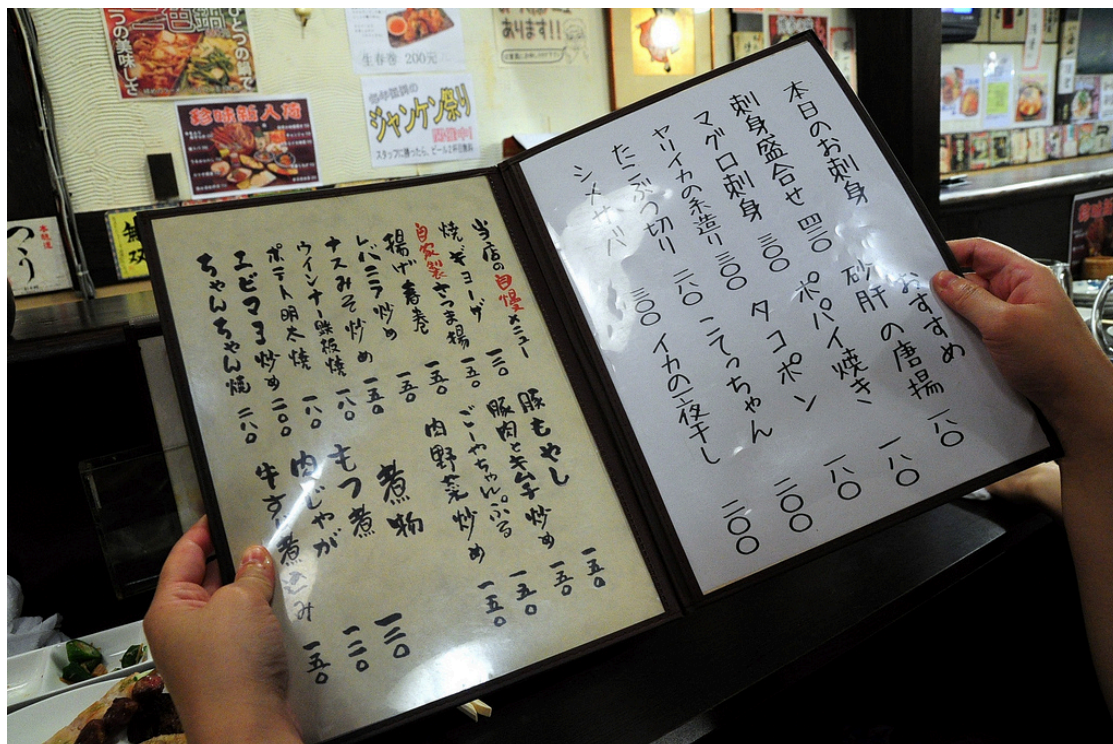 二色鍋
ひとつの鍋で
二つの美味しさ
生春巻 200円
あります!!
ジャンケン祭り
開催中!
スタッフに勝ったら、ビール2杯目無料
無双
本日のお刺身
刺身盛合せ
マグロ刺身 三〇〇
ヤリイカの糸造り 三〇〇
たこぶつ切り 二八〇
シメサバ 三〇〇
おすすめ
砂肝の唐揚 一八〇
ポパイ焼き 一八〇
タコポン 一八〇
こてっちゃん 二〇〇
イカの一夜干し 二〇〇
当店の自慢メニュー
焼ギョーザ 一二〇
自家製さつま揚 一五〇
揚げ春巻 一五〇
レバニラ炒め 一五〇
ナスみそ炒め 一五〇
ウインナー鉄板焼 一八〇
ポテト明太焼 一八〇
エビマヨ炒め 二〇〇
ちゃんちゃん焼 二八〇
豚もやし 一五〇
豚肉とキムチ炒め 一五〇
ごーやちゃんぷる 一五〇
肉野菜炒め 一五〇
煮物
もつ煮 一二〇
肉じゃが 一二〇
牛すじ煮込み 一五〇